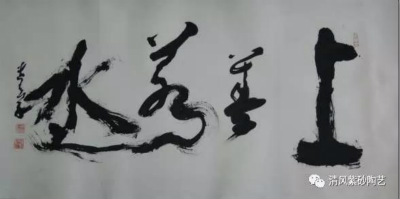 上善若水
清风紫砂陶艺